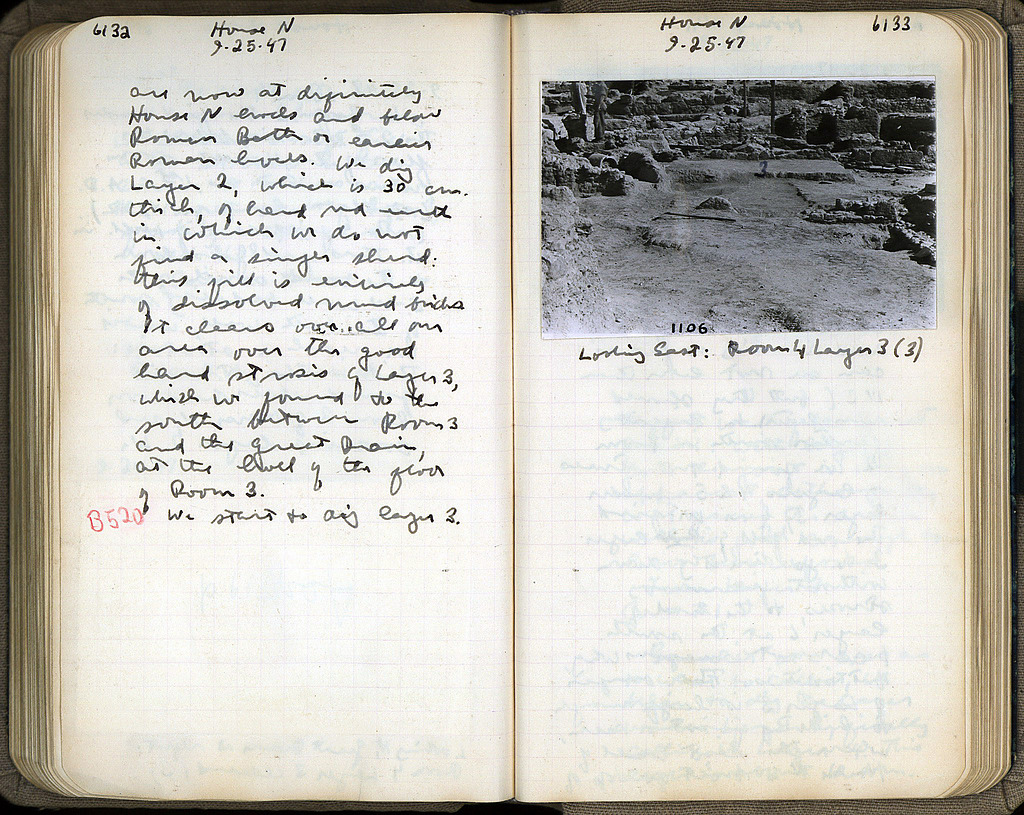 6132
House N
9-25-47
are now at definitely
House N levels and below
Roman Bath or earlier
Roman levels. We dig
Layer 2, which is 30 cm.
thick, of hard red earth
in which we do not
find a single sherd:
this fill is entirely
of dissolved mud bricks
It clears over all our
area over the good
hard strosis of Layer 3,
which we found to the
south between Room 3
and the Great Drain,
at the level of the floor
of Room 3.
B520 We start to dig layer 3.
House N
9-25-47
6133
2
1106
Looking East: Room 4 Layer 3 (3)